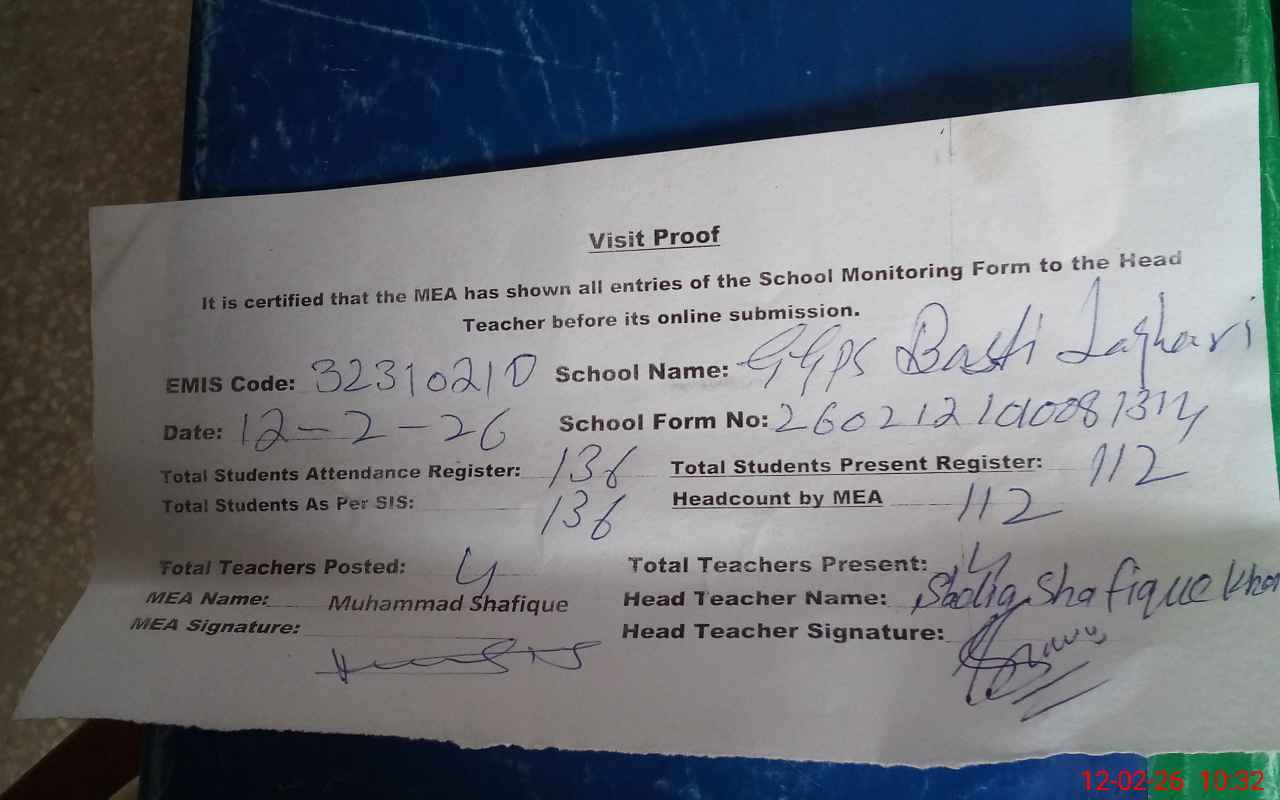 Visit Proof
It is certified that the MEA has shown all entries of the School Monitoring Form to the Head
Teacher before its online submission.
EMIS Code: 32310210 School Name: GGPS Basti Laghari
Date: 12-2-26 School Form No:
Total Students Attendance Register: 136 Total Students Present Register: 112
Total Students As Per SIS: 136 Headcount by MEA 112
Total Teachers Posted: 4 Total Teachers Present: 4
MEA Name: Muhammad Shafique Head Teacher Name: Shafique Khan
MEA Signature: Head Teacher Signature:
12-02-26 10:32